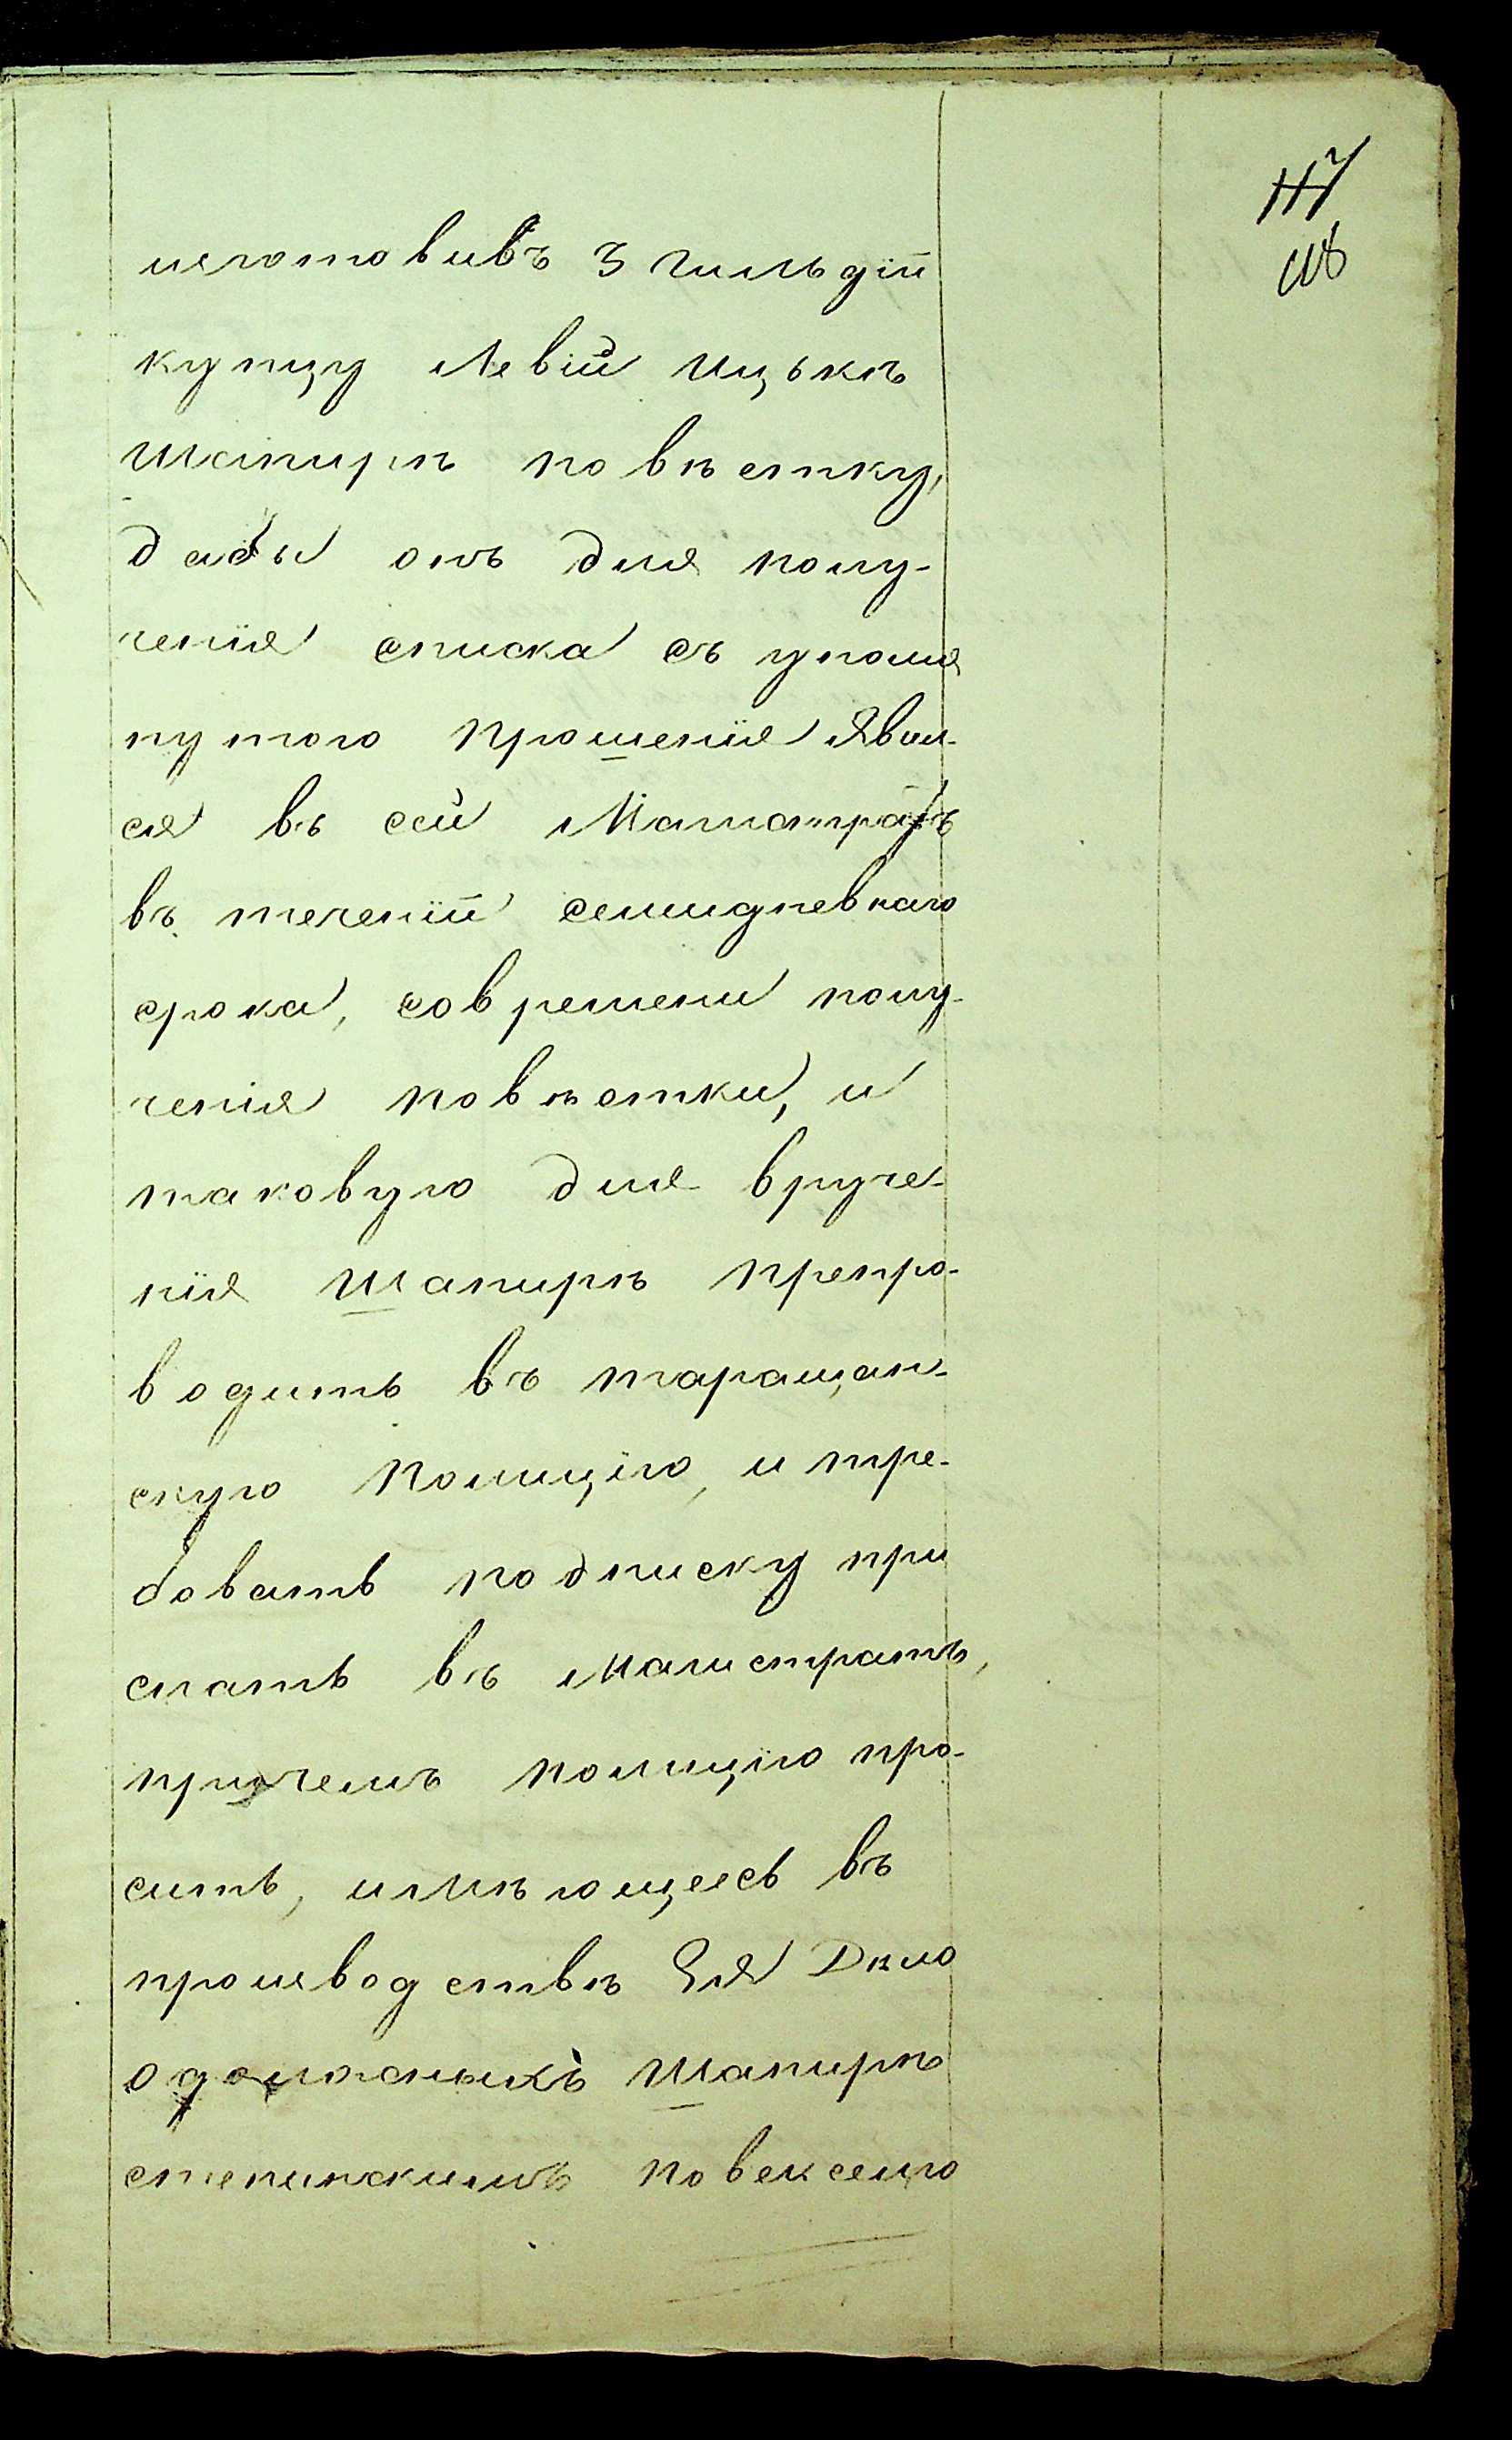 117
118
изготовивъ 3 гильдіи
купцу Левіи Ицькѣ
Шапирѣ повѣстку,
дабы онъ для полу-
ченія списка съ упомя
нутого прошенія явил-
ся въ сей Магистратъ
въ теченіи семидневнаго
срока, современи полу-
ченія повѣстки, и
таковую для вруче-
нія Шапирѣ препро-
водить въ таращан-
скую Полицію, и тре-
бовать подписку при
слать въ Магистратъ,
причемъ полицію про-
сить, имѣющееся въ
производствѣ Ея Дѣло
одолжныхъ Шапирѣ
степанскимъ повекселю